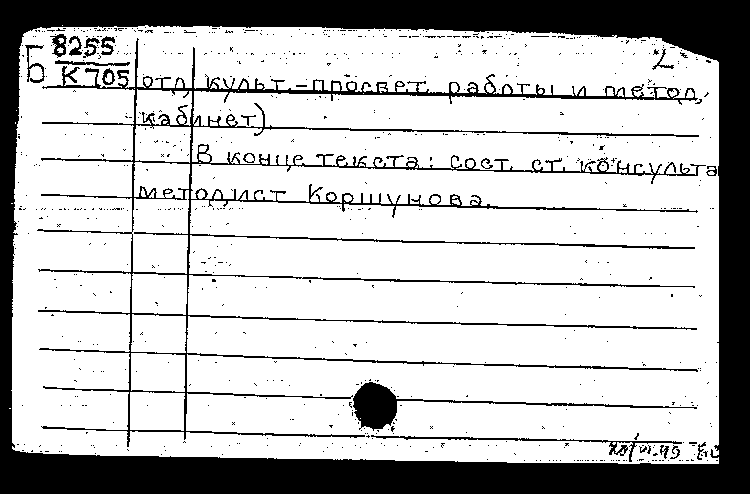 Б 8255
К 705
2
отд. культ.-просвет. работы и метод.
кабинет).
В конце текста: сост. ст. консульта
методист Коршунова.